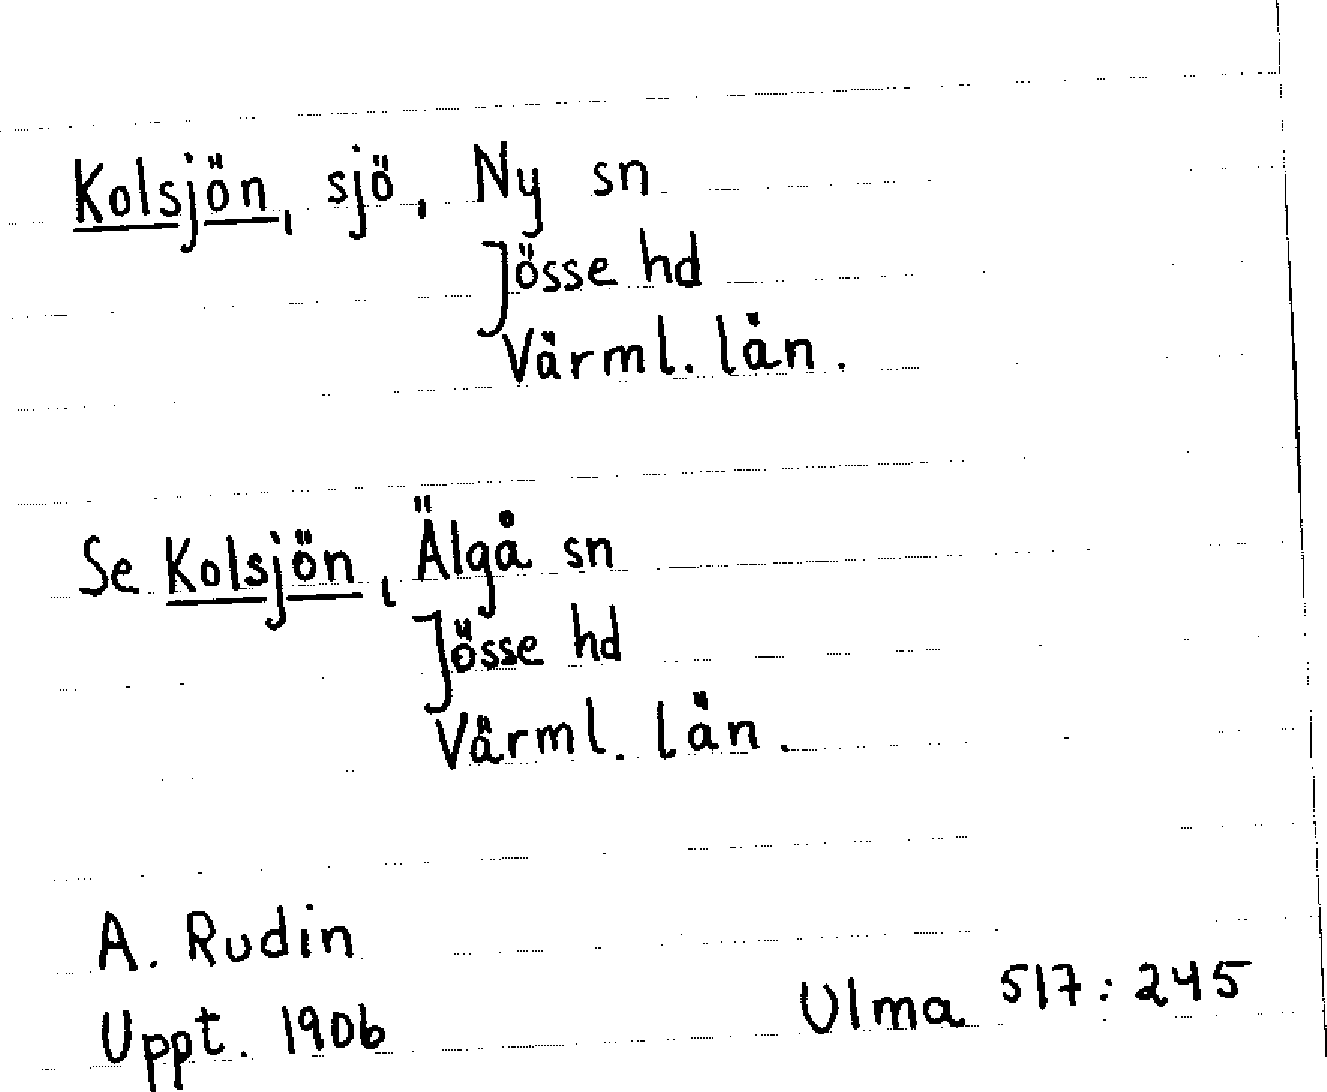 Kolsjön, sjö, Ny sn
Jösse hd
Värml. län.
Se Kolsjön, Älgå sn
Jösse hd
Värml. län.
A. Rudin
Uppt. 1906
Ulma 517:245